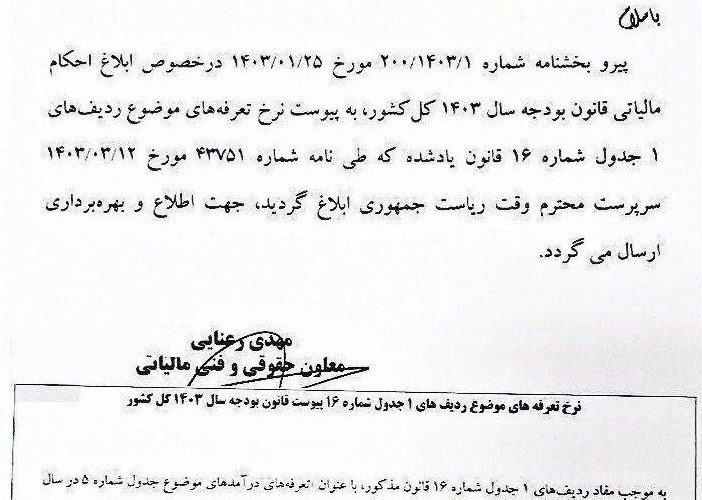 با سلام
پیرو بخشنامه شماره ۲۰۰/۱۴۰۳/۱ مورخ ۱۴۰۳/۰۱/۲۵ درخصوص ابلاغ احکام
مالیاتی قانون بودجه سال ۱۴۰۳ کل‌کشور، به پیوست نرخ تعرفه‌های موضوع ردیف‌های
۱ جدول شماره ۱۶ قانون یادشده که طی نامه شماره ۴۳۷۵۱ مورخ ۱۴۰۳/۰۳/۱۲
سرپرست محترم وقت ریاست جمهوری ابلاغ گردید، جهت اطلاع و بهره‌برداری
ارسال می گردد.
مهدی رعنایی
معاون حقوقی و فنی مالیاتی
نرخ تعرفه های موضوع ردیف های ۱ جدول شماره ۱۶ پیوست قانون بودجه سال ۱۴۰۳ کل کشور
به موجب مفاد ردیف‌های ۱ جدول شماره ۱۶ قانون مذکور، با عنوان «تعرفه‌های درآمدهای موضوع جدول شماره ۵ در سال